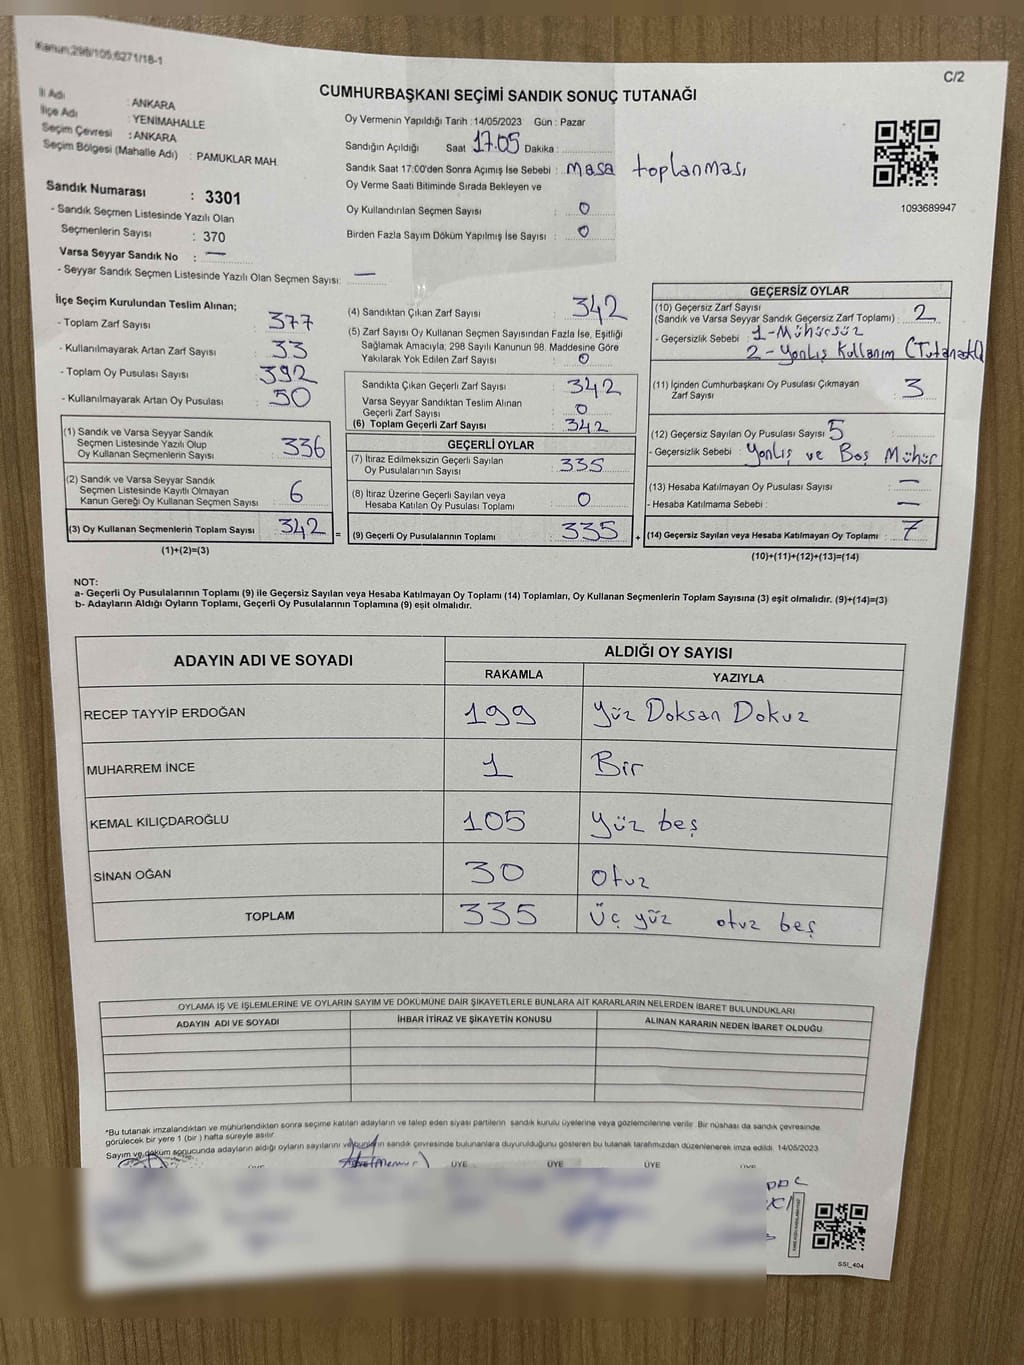 Kanun;298/105;6271/18-1
C/2
CUMHURBAŞKANI SEÇİMİ SANDIK SONUÇ TUTANAĞI
İl Adı : ANKARA
İlçe Adı : YENİMAHALLE
Seçim Çevresi : ANKARA
Seçim Bölgesi (Mahalle Adı) : PAMUKLAR MAH.
Sandık Numarası : 3301
- Sandık Seçmen Listesinde Yazılı Olan
Seçmenlerin Sayısı : 370
Varsa Seyyar Sandık No : —
- Seyyar Sandık Seçmen Listesinde Yazılı Olan Seçmen Sayısı: —
Oy Vermenin Yapıldığı Tarih :14/05/2023 Gün : Pazar
Sandığın Açıldığı Saat 17.05 Dakika :
Sandık Saat 17:00'den Sonra Açımış İse Sebebi : Masa toplanması
Oy Verme Saati Bitiminde Sırada Bekleyen ve
Oy Kullandırılan Seçmen Sayısı : 0
Birden Fazla Sayım Döküm Yapılmış İse Sayısı : 0
1093689947
İlçe Seçim Kurulundan Teslim Alınan;
- Toplam Zarf Sayısı : 377
- Kullanılmayarak Artan Zarf Sayısı : 33
- Toplam Oy Pusulası Sayısı : 392
- Kullanılmayarak Artan Oy Pusulası : 50
(1) Sandık ve Varsa Seyyar Sandık
Seçmen Listesinde Yazılı Olup
Oy Kullanan Seçmenlerin Sayısı : 336
(2) Sandık ve Varsa Seyyar Sandık
Seçmen Listesinde Kayıtlı Olmayan
Kanun Gereği Oy Kullanan Seçmen Sayısı : 6
(3) Oy Kullanan Seçmenlerin Toplam Sayısı : 342 =
(1)+(2)=(3)
(4) Sandıktan Çıkan Zarf Sayısı : 342
(5) Zarf Sayısı Oy Kullanan Seçmen Sayısından Fazla İse, Eşitliği
Sağlamak Amacıyla; 298 Sayılı Kanunun 98. Maddesine Göre
Yakılarak Yok Edilen Zarf Sayısı : 0
Sandıkta Çıkan Geçerli Zarf Sayısı : 342
Varsa Seyyar Sandıktan Teslim Alınan
Geçerli Zarf Sayısı : 0
(6) Toplam Geçerli Zarf Sayısı : 342
GEÇERLİ OYLAR
(7) İtiraz Edilmeksizin Geçerli Sayılan
Oy Pusulalarının Sayısı : 335
(8) İtiraz Üzerine Geçerli Sayılan veya
Hesaba Katılan Oy Pusulası Toplamı : 0
(9) Geçerli Oy Pusulalarının Toplamı : 335 +
GEÇERSİZ OYLAR
(10) Geçersiz Zarf Sayısı
(Sandık ve Varsa Seyyar Sandık Geçersiz Zarf Toplamı) : 2
- Geçersizlik Sebebi : 1-Mühürsüz
2-Yanlış Kullanım (Tutanaklı)
(11) İçinden Cumhurbaşkanı Oy Pusulası Çıkmayan
Zarf Sayısı : 3
(12) Geçersiz Sayılan Oy Pusulası Sayısı 5
- Geçersizlik Sebebi : Yanlış ve Boş Mühür
(13) Hesaba Katılmayan Oy Pusulası Sayısı : —
- Hesaba Katılmama Sebebi : —
(14) Geçersiz Sayılan veya Hesaba Katılmayan Oy Toplamı : 7
(10)+(11)+(12)+(13)=(14)
NOT:
a- Geçerli Oy Pusulalarının Toplamı (9) ile Geçersiz Sayılan veya Hesaba Katılmayan Oy Toplamı (14) Toplamları, Oy Kullanan Seçmenlerin Toplam Sayısına (3) eşit olmalıdır. (9)+(14)=(3)
b- Adayların Aldığı Oyların Toplamı, Geçerli Oy Pusulalarının Toplamına (9) eşit olmalıdır.
ADAYIN ADI VE SOYADI
ALDIĞI OY SAYISI
RAKAMLA YAZIYLA
RECEP TAYYİP ERDOĞAN 199 Yüz Doksan Dokuz
MUHARREM İNCE 1 Bir
KEMAL KILIÇDAROĞLU 105 Yüz beş
SİNAN OĞAN 30 Otuz
TOPLAM 335 Üç yüz otuz beş
OYLAMA İŞ VE İŞLEMLERİNE VE OYLARIN SAYIM VE DÖKÜMÜNE DAİR ŞİKAYETLERLE BUNLARA AİT KARARLARIN NELERDEN İBARET BULUNDUKLARI
ADAYIN ADI VE SOYADI İHBAR İTİRAZ VE ŞİKAYETİN KONUSU ALINAN KARARIN NEDEN İBARET OLDUĞU
*Bu tutanak imzalandıktan ve mühürlendikten sonra seçime katılan adayların ve talep eden siyasi partilerin sandık kurulu üyelerine veya gözlemcilerine verilir. Bir nüshası da sandık çevresinde
görülecek bir yere 1 (bir ) hafta süreyle asılır.
Sayım ve döküm sonucunda adayların aldığı oyların sayılarını ve bunların sandık çevresinde bulunanlara duyurulduğunu gösteren bu tutanak tarafımızdan düzenlenerek imza edildi. 14/05/2023
ÜYE ÜYE ÜYE
SSİ_404